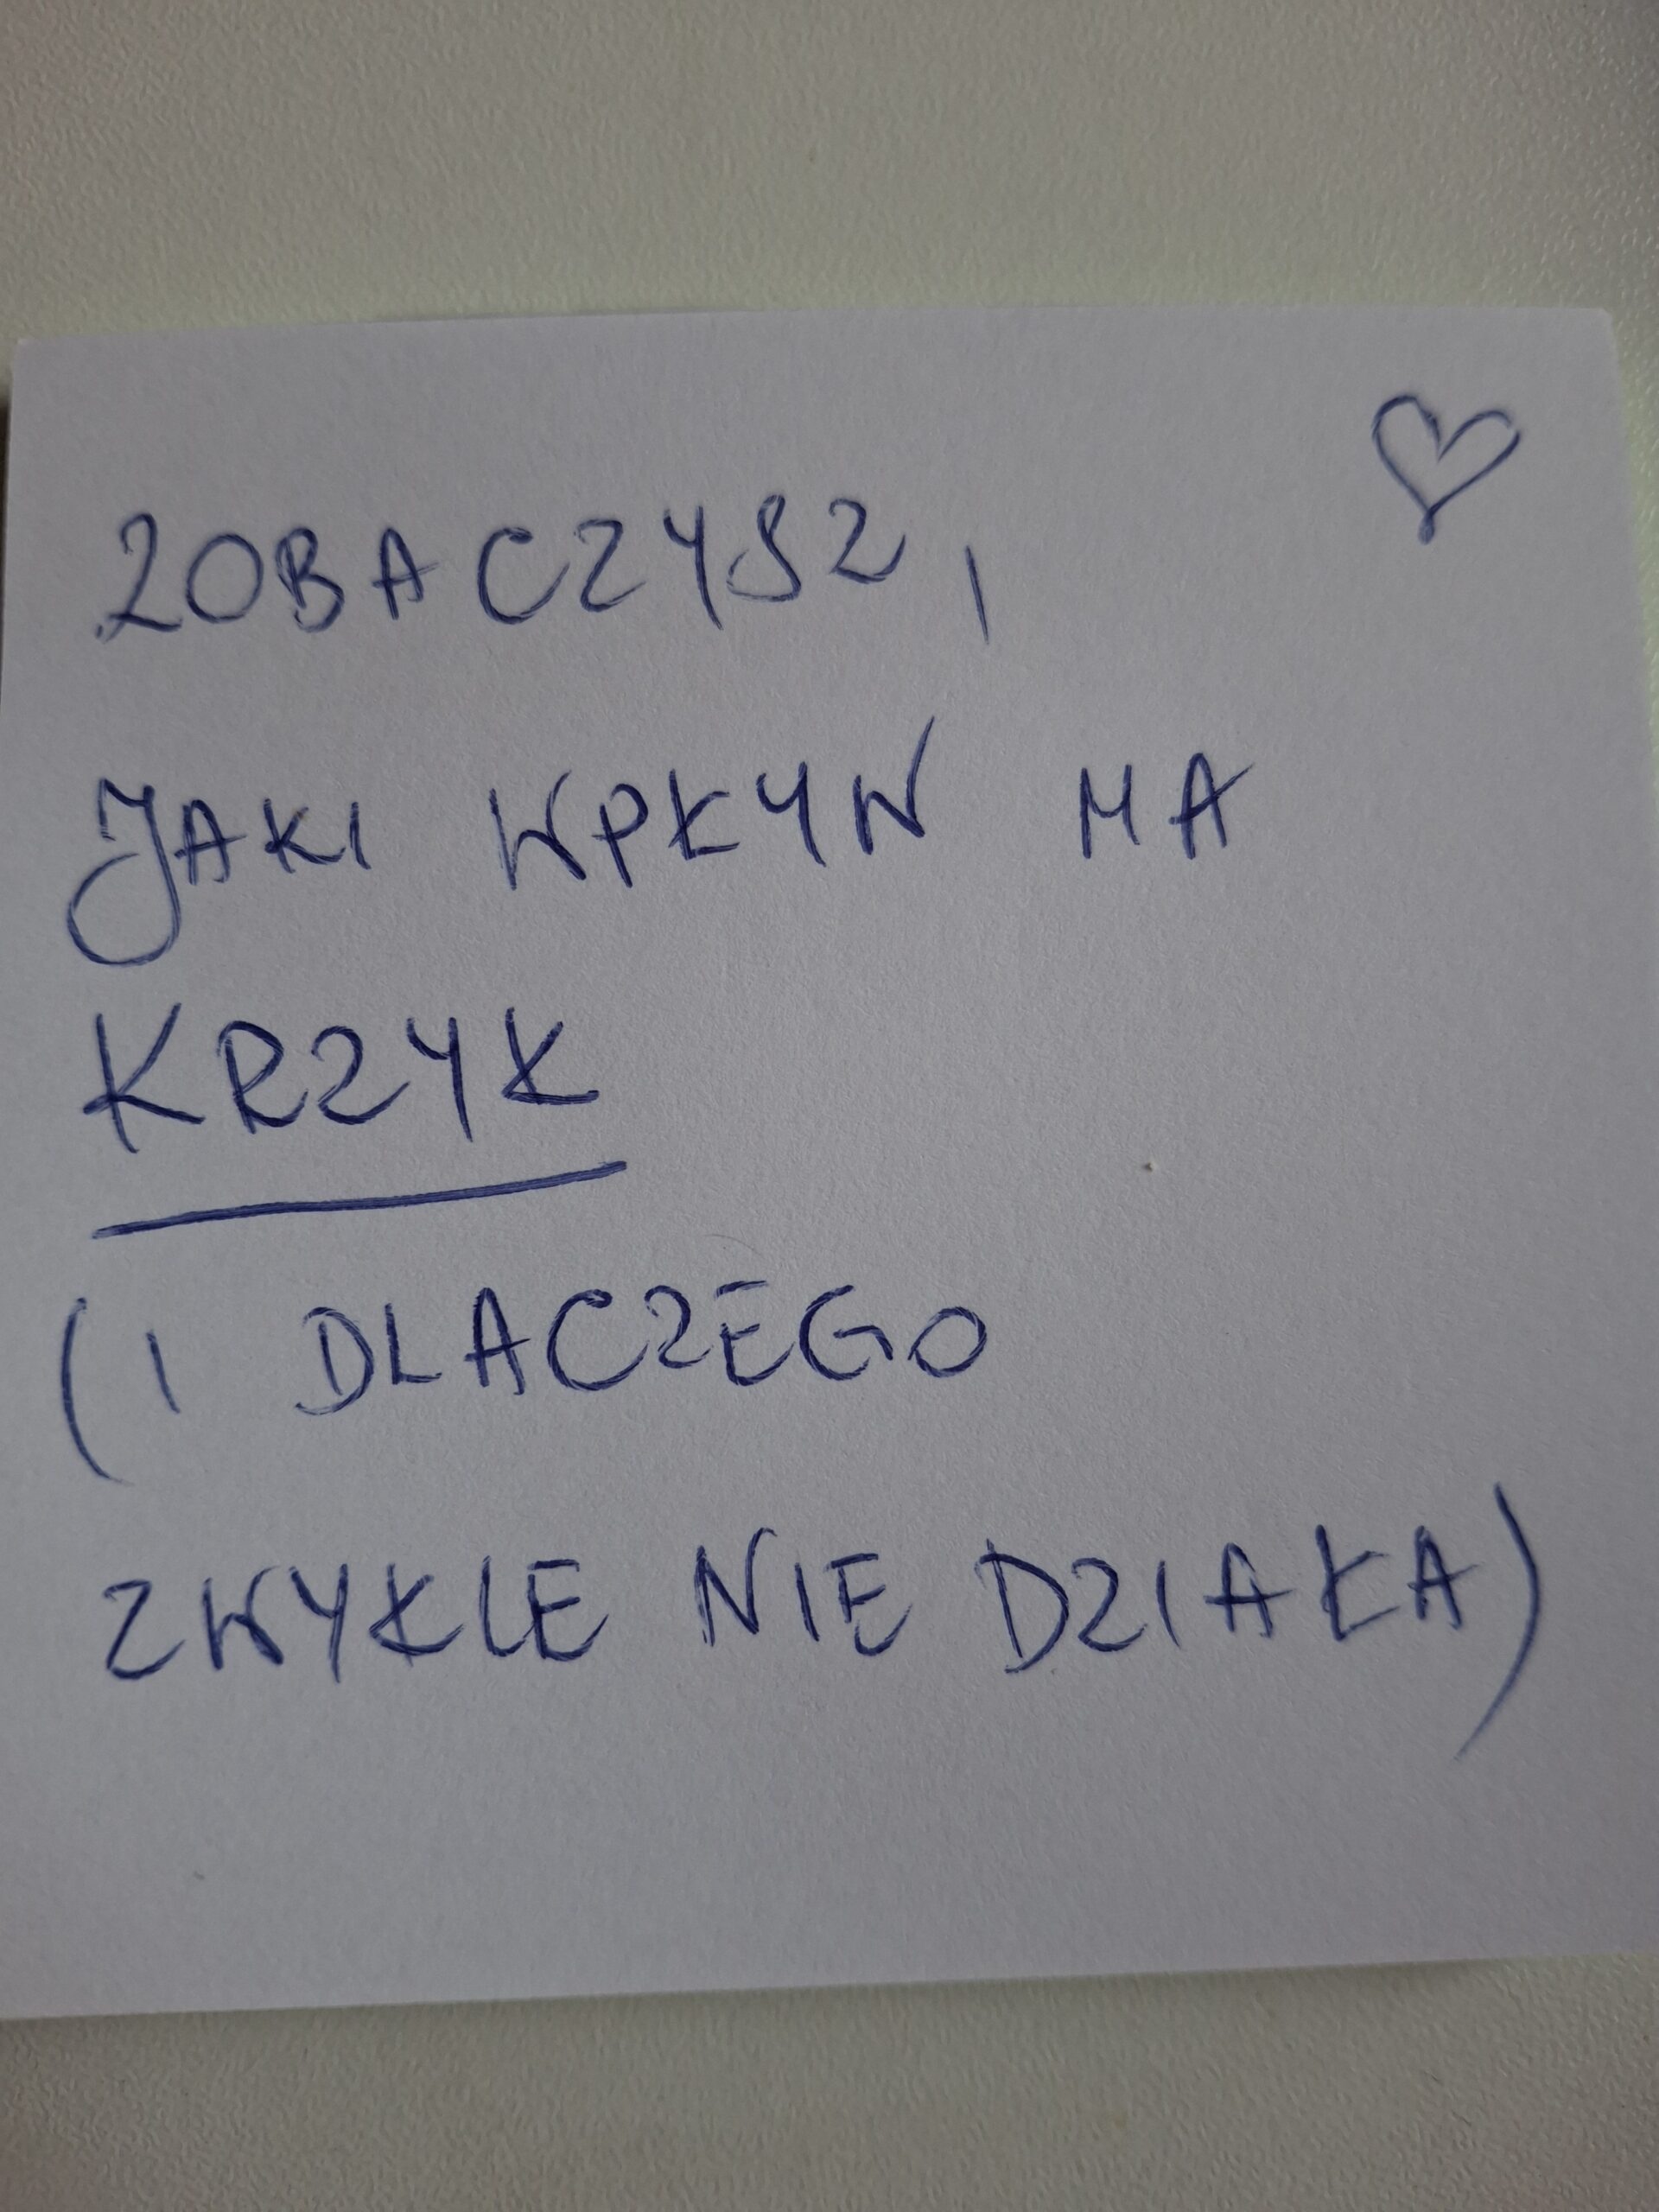 ZOBACZYSZ,
JAKI WPŁYW MA
KRZYK
(I DLACZEGO
ZWYKLE NIE DZIAŁA)